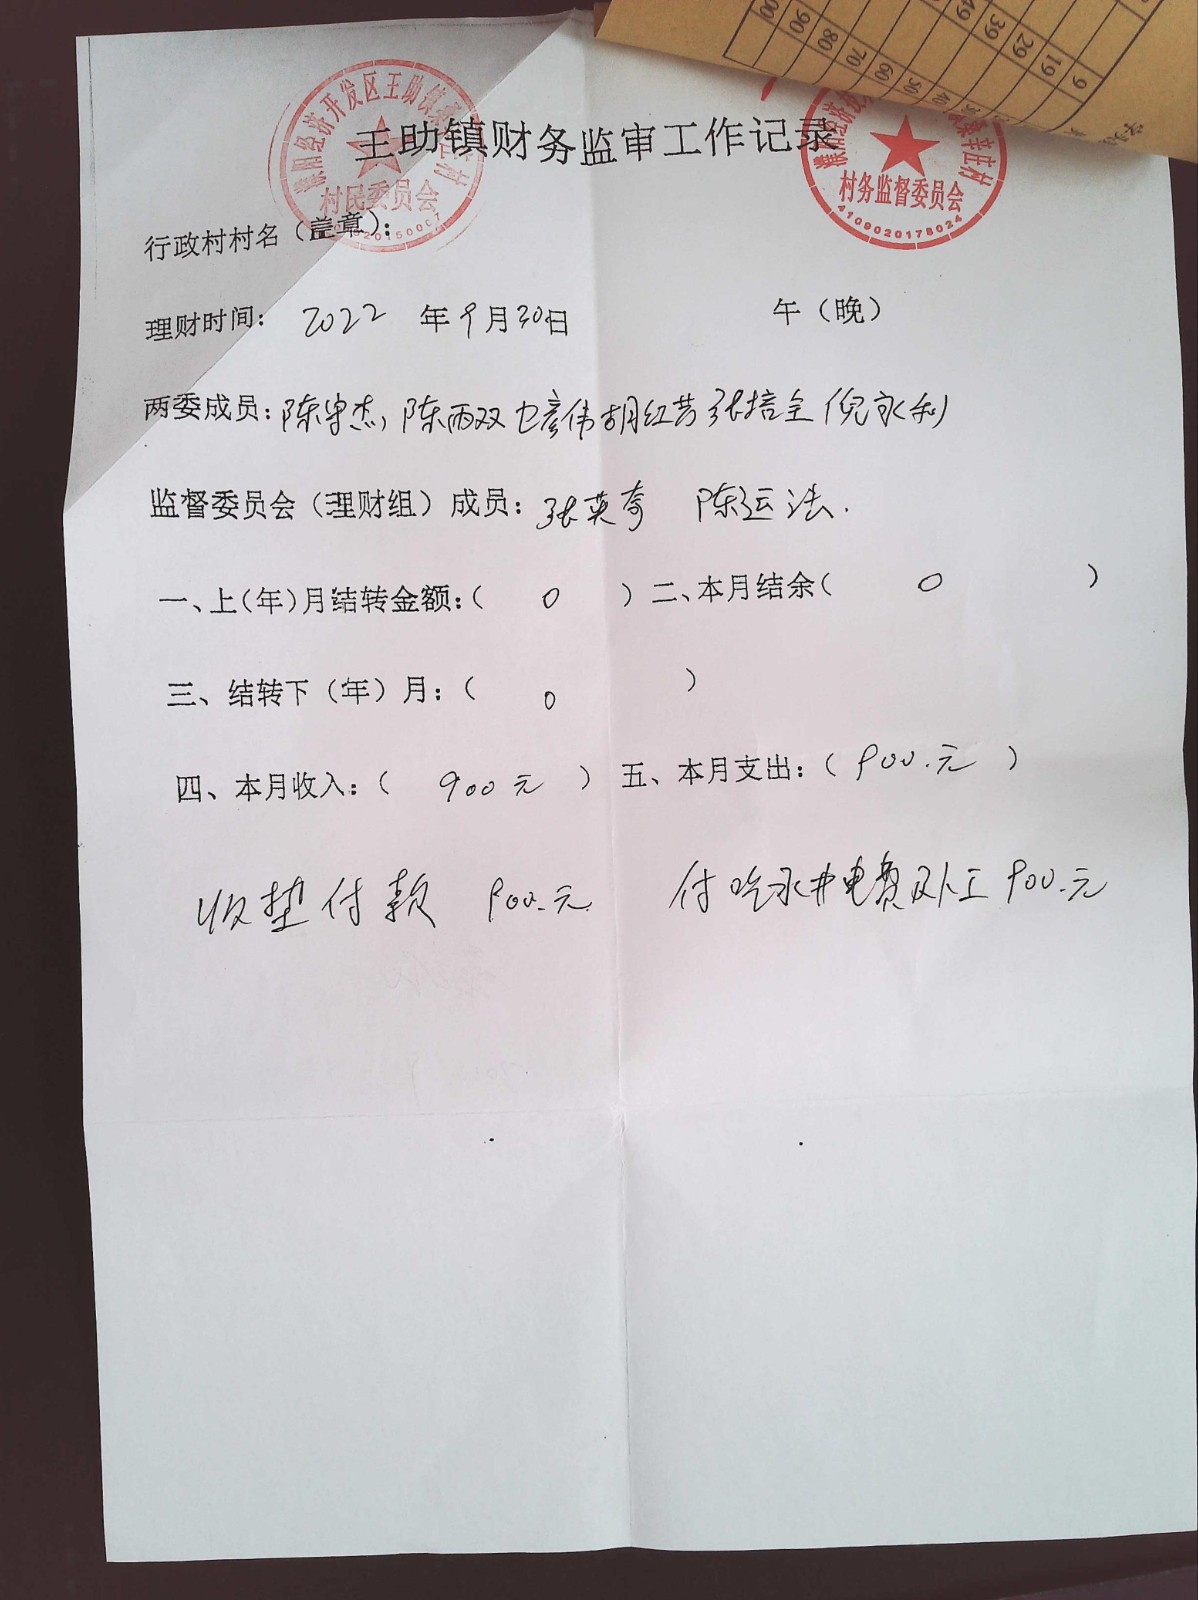 王助镇财务监审工作记录
村民委员会
村务监督委员会
4109020178024
行政村村名（盖章）：
理财时间： 2022 年 9 月 30 日 午（晚）
两委成员：陈守杰，陈雨双 胡红芳 张培全 倪永利
监督委员会（理财组）成员：张英奇 陈运法.
一、上(年)月结转金额：（ 0 ）二、本月结余（ 0 ）
三、结转下（年）月：（ 0 ）
四、本月收入：（ 900元 ）五、本月支出：（ 900.元 ）
收垫付款 900.元 付吃水井电费及卜工900.元
9 19 29 39 49
50 60 70 80 90 00